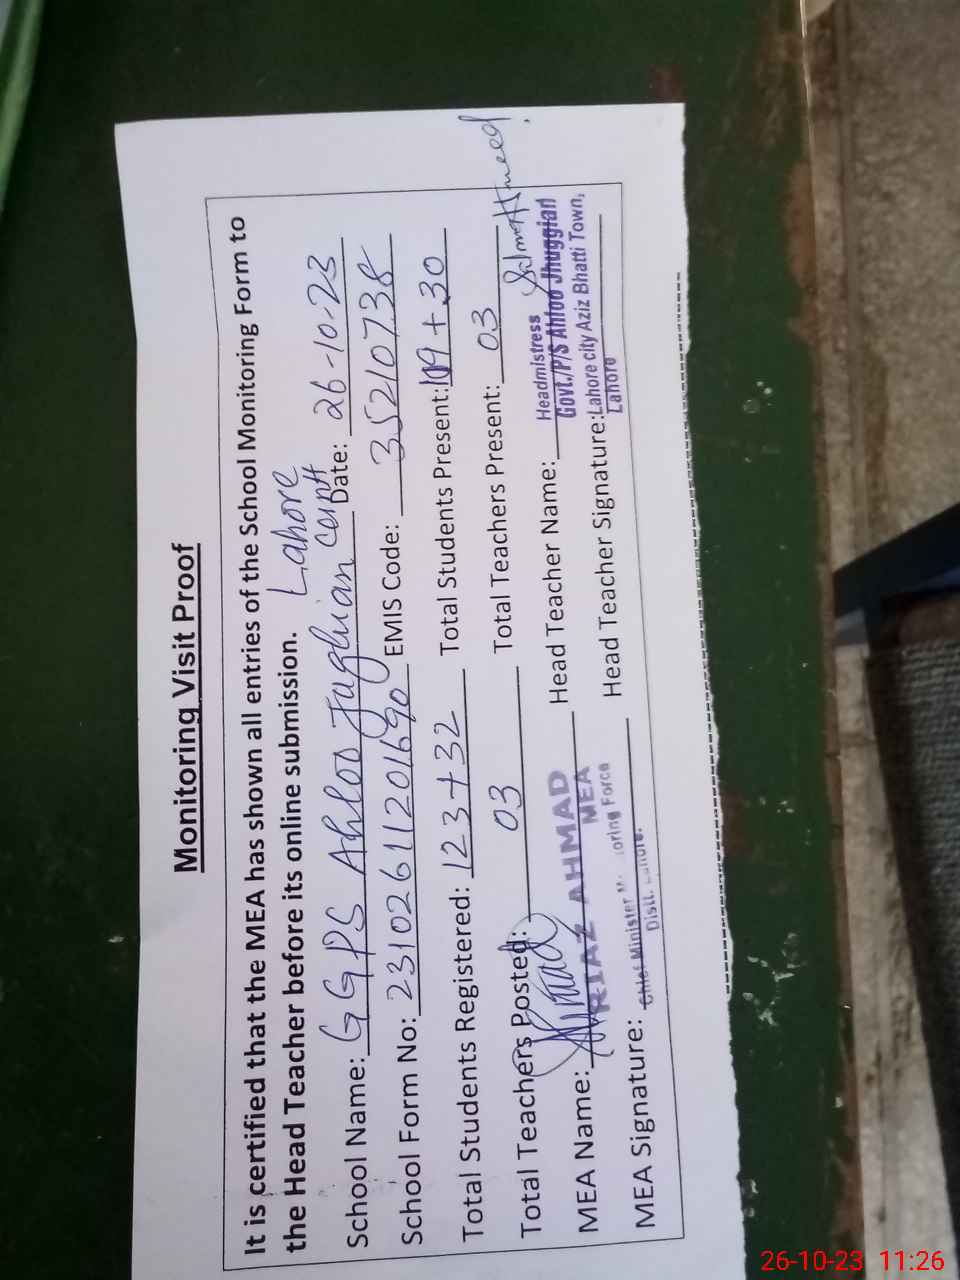 Monitoring Visit Proof
It is certified that the MEA has shown all entries of the School Monitoring Form to
the Head Teacher before its online submission.
Lahore
School Name: GGPS Ahloo Jughian Cantt Date: 26-10-23
School Form No: 23102611201690 EMIS Code: 35210738
Total Students Registered: 123+32 Total Students Present: 109+30
Total Teachers Posted: 03 Total Teachers Present: 03
MEA Name: RIAZ AHMAD MEA Head Teacher Name: Headmistress
Govt./P/S Ahloo Jhuggian
Lahore city Aziz Bhatti Town,
Lahore
MEA Signature: Chief Minister Force Head Teacher Signature:
Distt. Lahore.
26-10-23 11:26